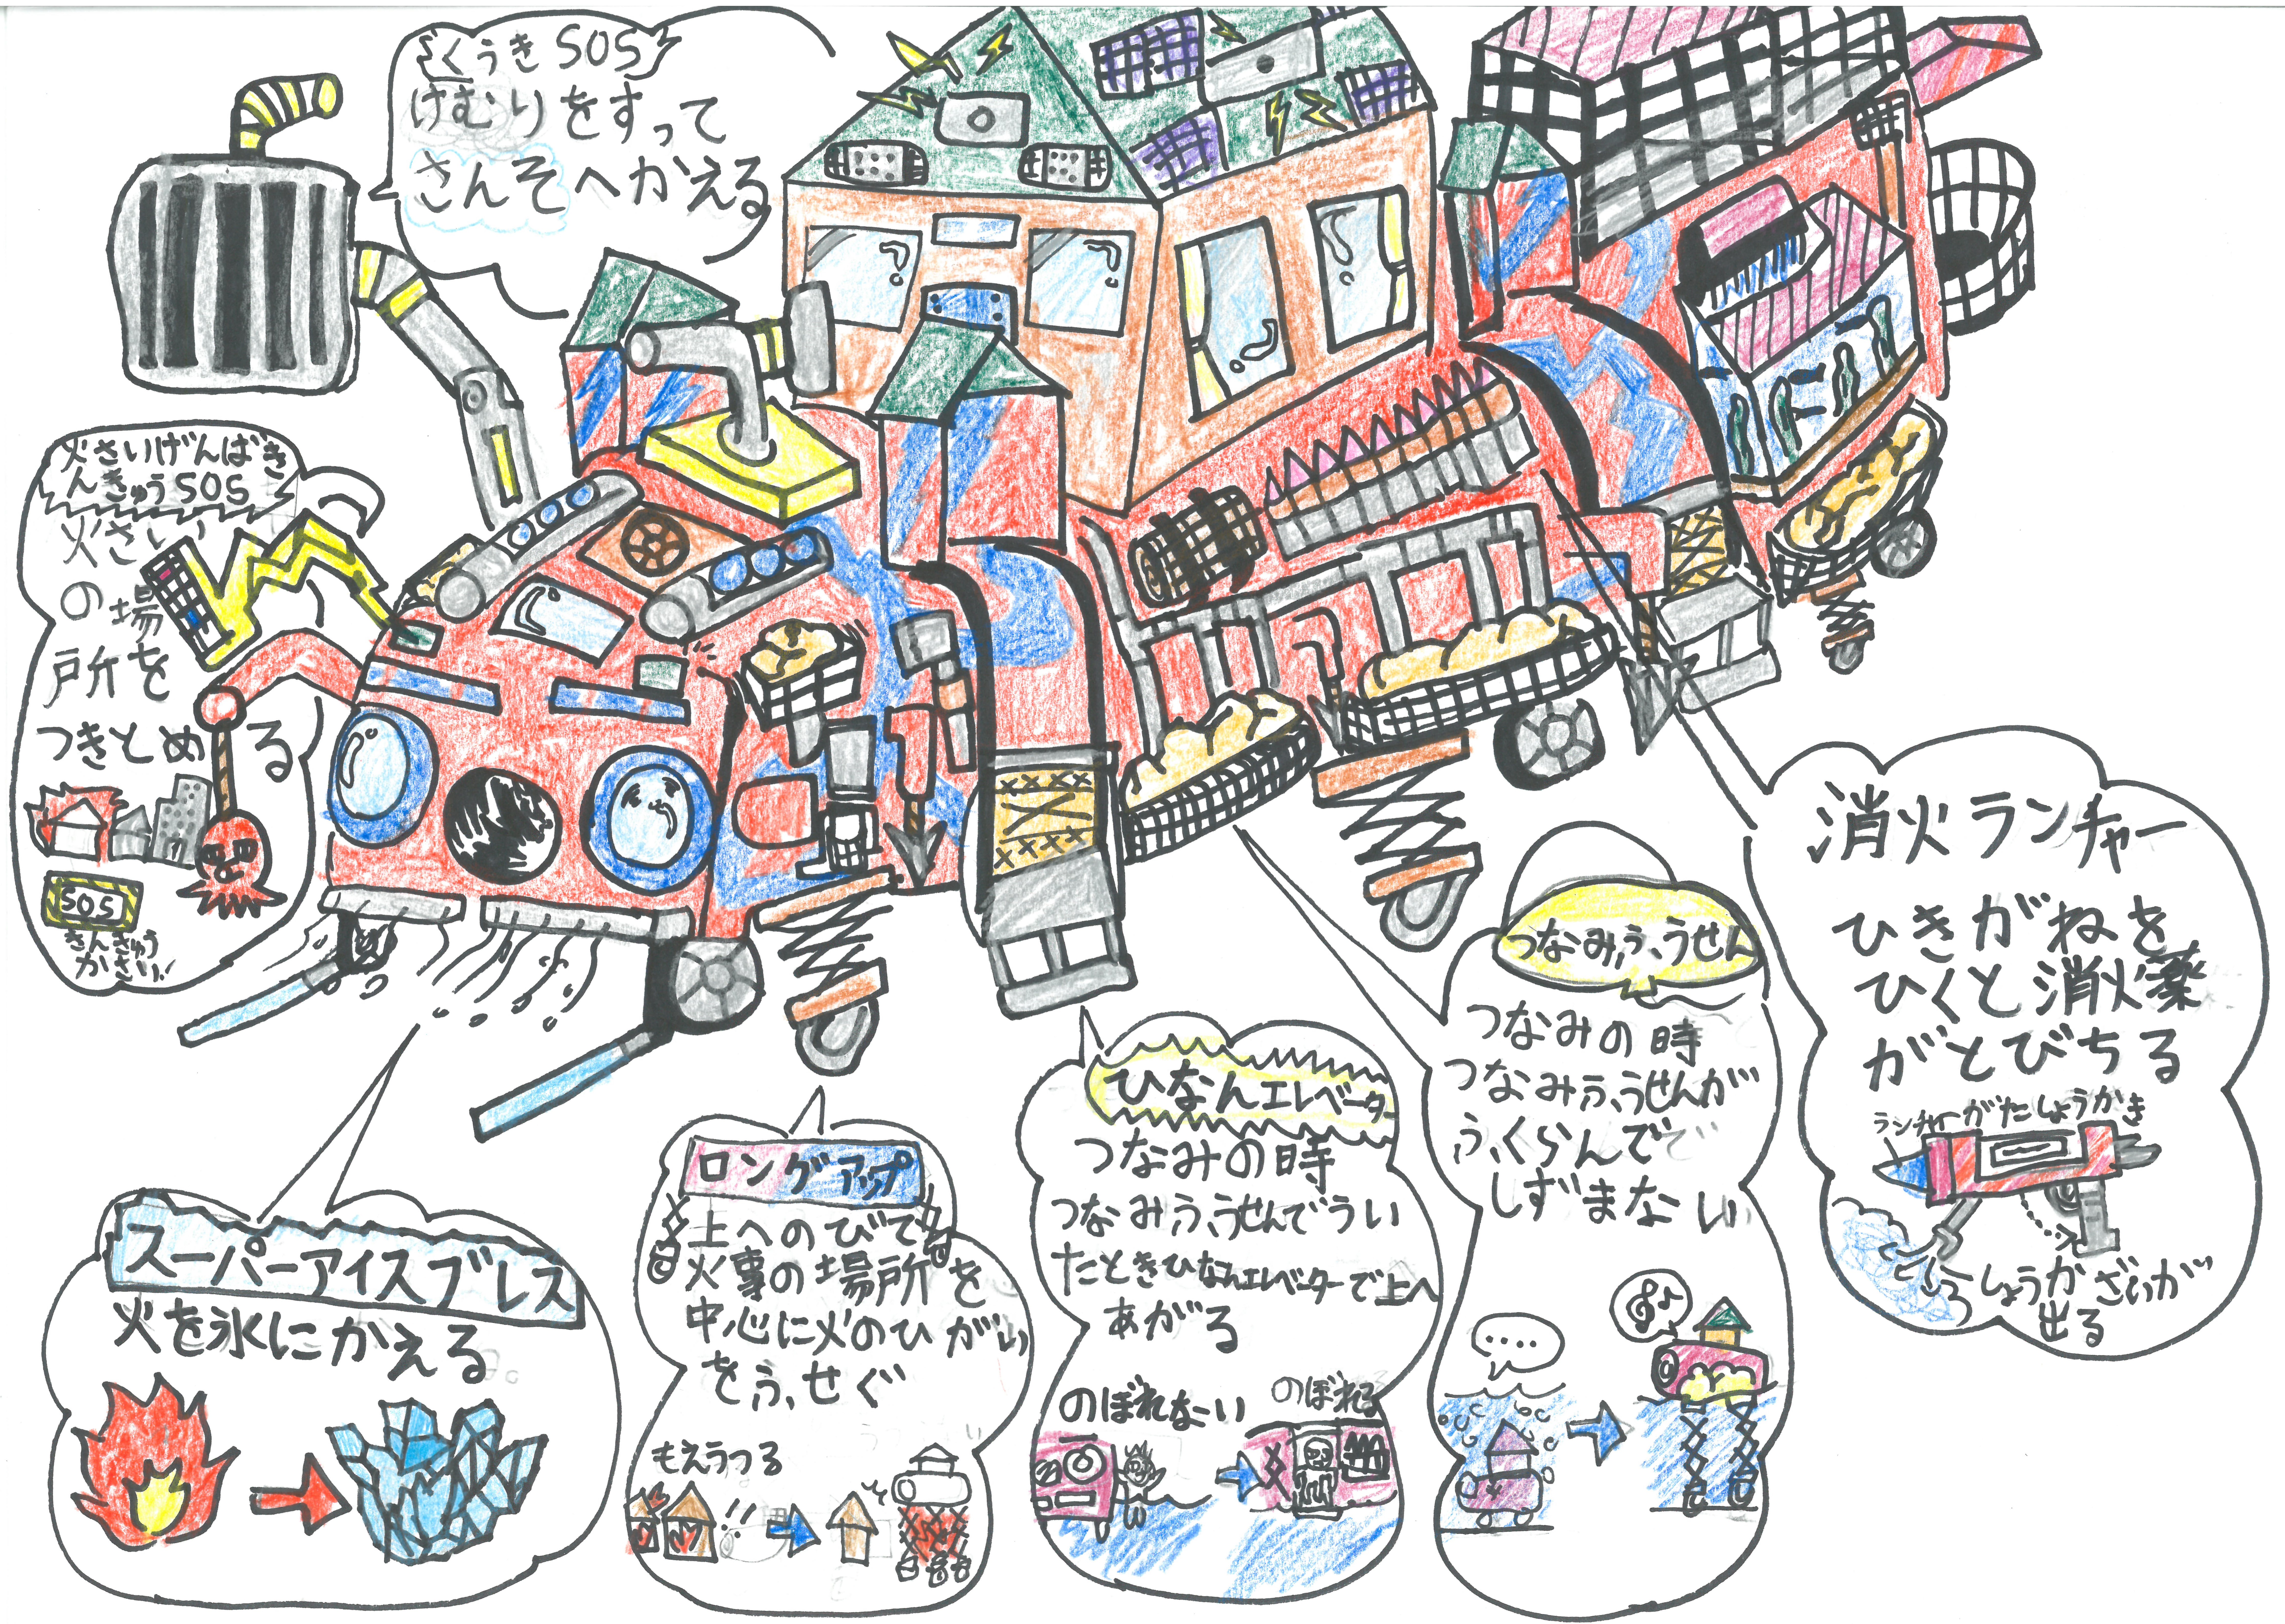 くうきSOS
けむりをすって
さんそへかえる
火さいげんばき
んきゅうSOS
火さい
の場
所を
つきとめる
SOS
きんきゅう
かさい!
スーパーアイスブレス
火を氷にかえる
ロングアップ
上へのびて
火事の場所を
中心に火のひがい
をふせぐ
もえうつる
!!
ひなんエレベーター
つなみの時
つなみふうせんでうい
たときひなんエレベーターで上へ
あがる
のぼれなーい
のぼれる
つなみふうせん
つなみの時
つなみふうせんが
ふくらんで
しずまない
消火ランチャー
ひきがねを
ひくと消火薬
がとびちる
ランチャーがたしょうかき
しょうかざいが
出る